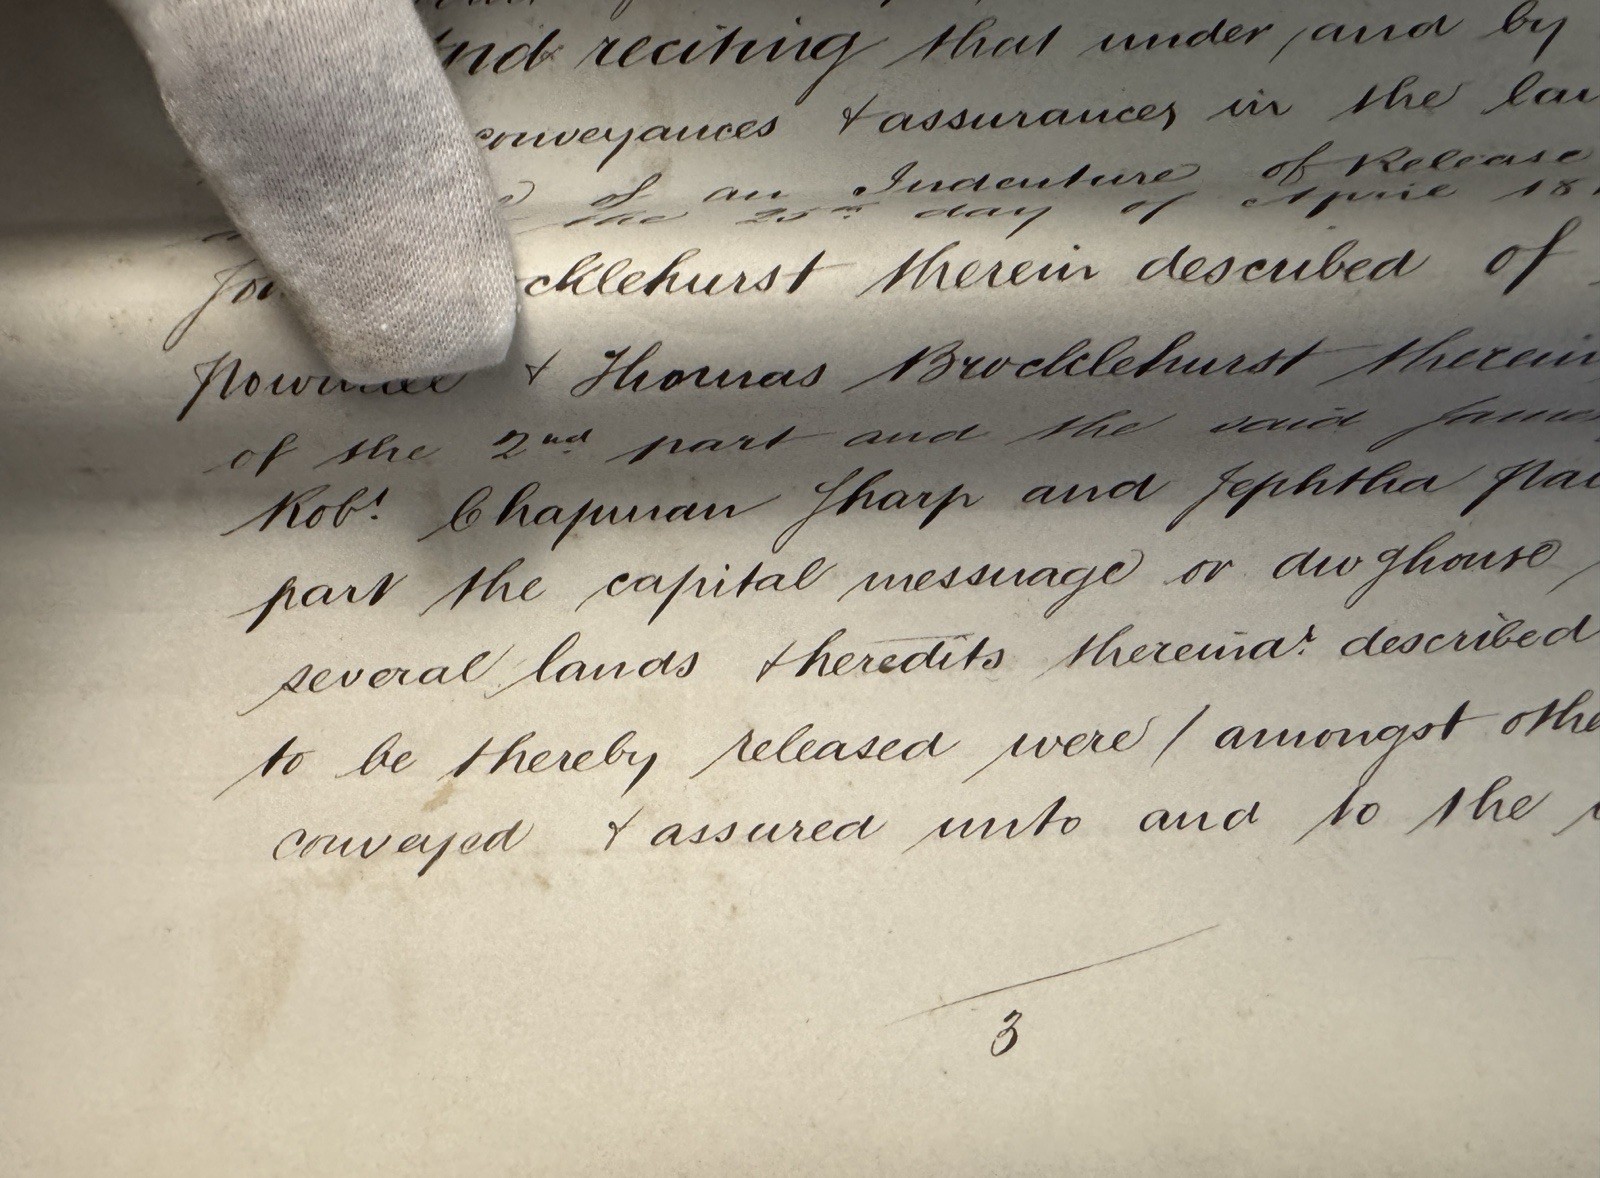 and reciting that under and by
conveyances & assurances in the
of an Indenture of Release
the 25th day of April 18
cklehurst therein described of
& Thomas Brocklehurst therein
of the 2nd part and the said James
Robt. Chapman Sharp and Jephtha
part the capital messuage or dwghouse
several lands & heredits thereinar. described
to be thereby released were / amongst othe
conveyed & assured unto and to the
3